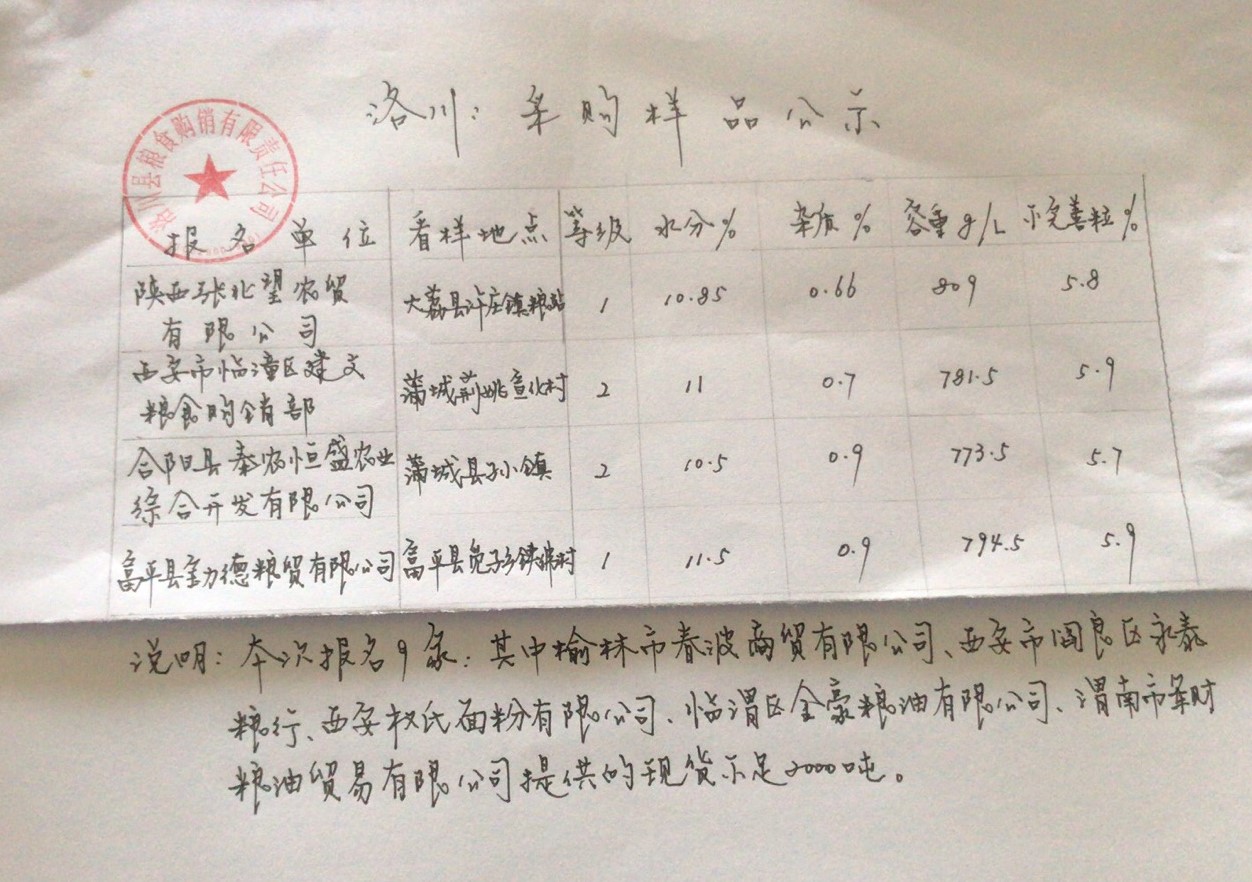 洛川：采购样品公示
洛川县粮食购销有限责任公司
报名单位 看样地点 等级 水分% 杂质% 容重g/L 不完善粒%
陕西张北望农贸
有限公司 大荔县许庄镇粮站 1 10.85 0.66 809 5.8
西安市临潼区建文
粮食购销部 蒲城荆姚宣化村 2 11 0.7 781.5 5.9
合阳县秦农恒盛农业
综合开发有限公司 蒲城县孙小镇 2 10.5 0.9 773.5 5.7
富平县勤德粮贸有限公司 富平县 1 11.5 0.9 794.5 5.9
说明：本次报名9家：其中榆林市春波商贸有限公司、西安市阎良区永泰
粮行、西安权氏面粉有限公司、临渭区金豪粮油有限公司、渭南市军财
粮油贸易有限公司提供的现货不足2000吨。